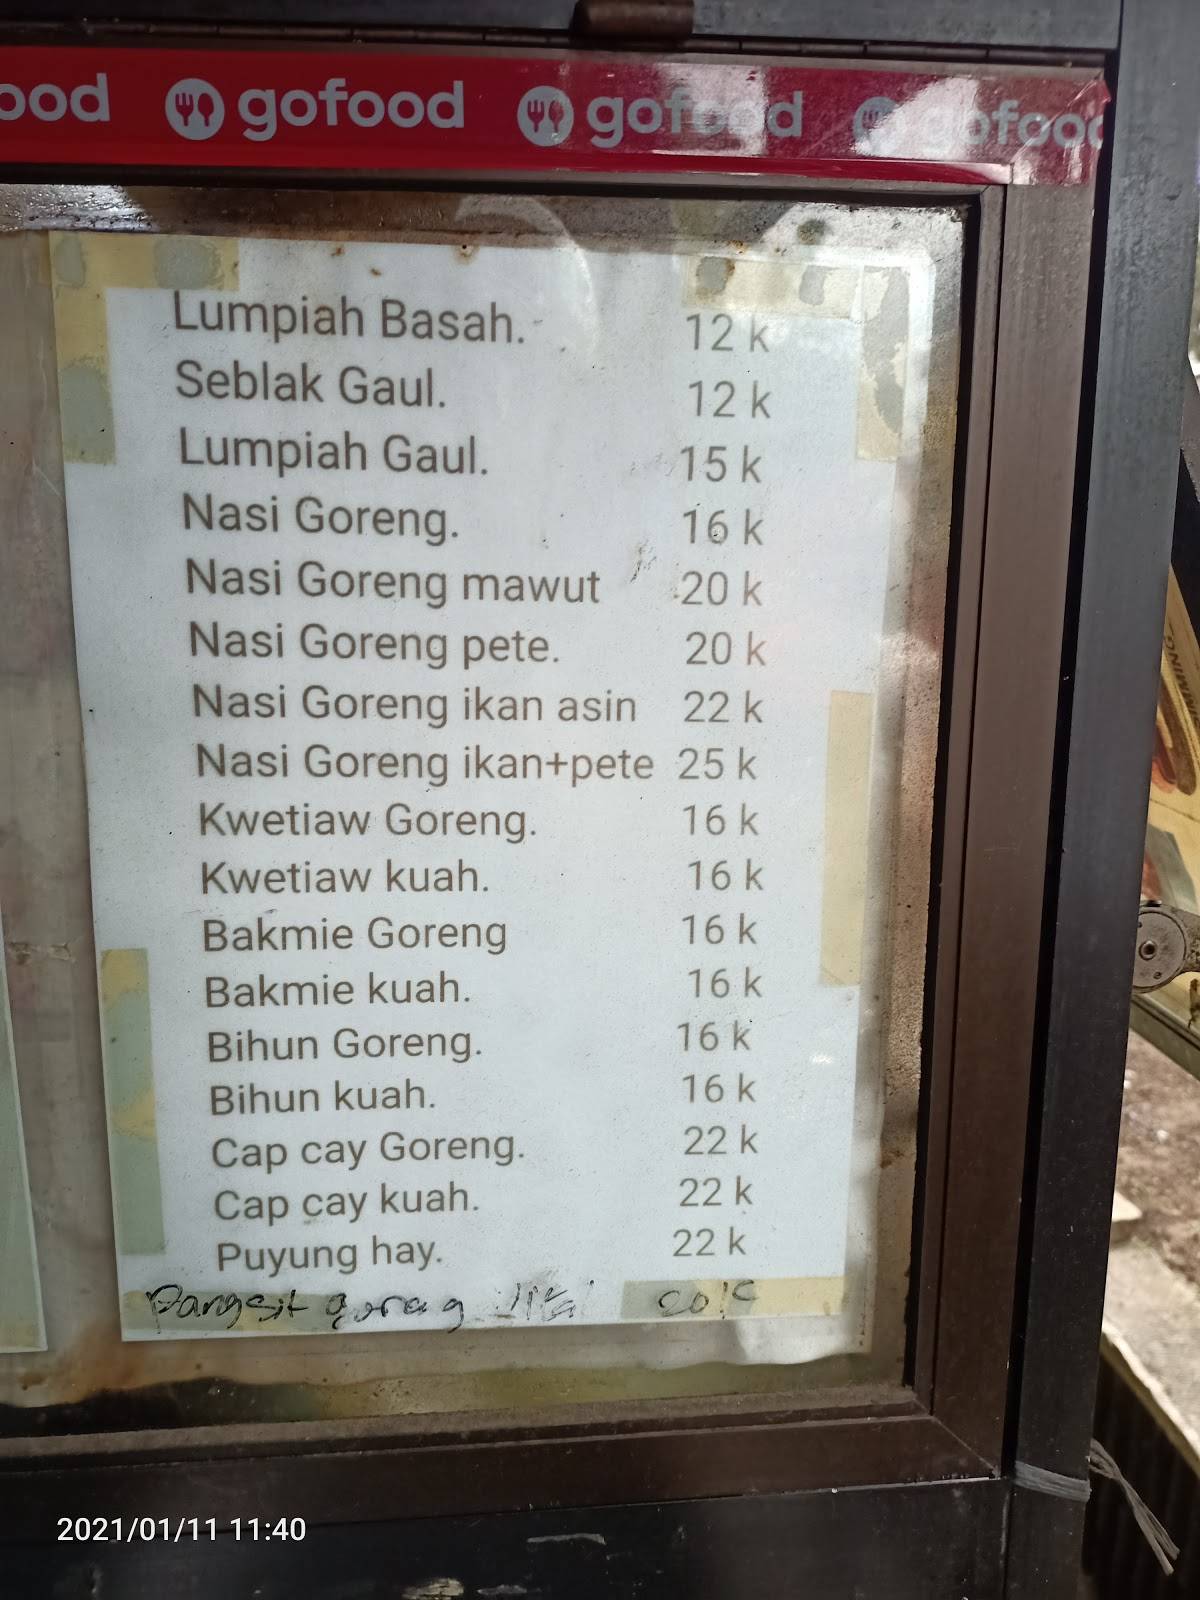 ood gofood gofood gofood
Lumpiah Basah. 12 k
Seblak Gaul. 12 k
Lumpiah Gaul. 15 k
Nasi Goreng. 16 k
Nasi Goreng mawut 20 k
Nasi Goreng pete. 20 k
Nasi Goreng ikan asin 22 k
Nasi Goreng ikan+pete 25 k
Kwetiaw Goreng. 16 k
Kwetiaw kuah. 16 k
Bakmie Goreng 16 k
Bakmie kuah. 16 k
Bihun Goreng. 16 k
Bihun kuah. 16 k
Cap cay Goreng. 22 k
Cap cay kuah. 22 k
Puyung hay. 22 k
Pangsit goreng 20 k
2021/01/11 11:40